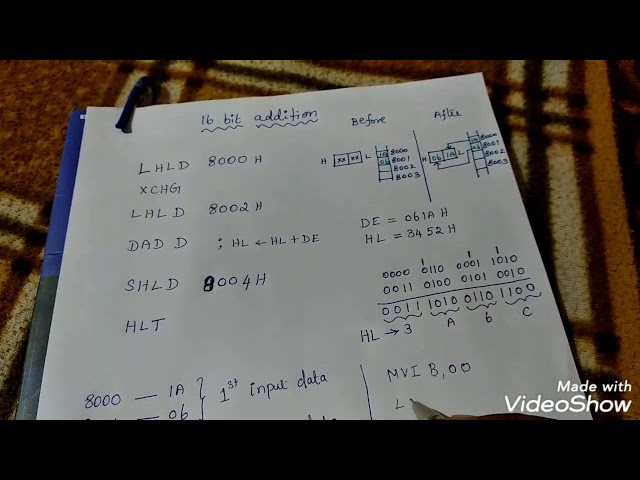 16 bit addition
Before
After
LHLD 8000 H
XCHG
LHLD 8002 H
DAD D ; HL ← HL + DE
SHLD 8004H
HLT
H xx xx L
1A 8000
06 8001
8002
8003
H 06 1A L
1A 8000
06 8001
8002
8003
DE = 061A H
HL = 3452 H
1 1
0000 0110 0001 1010
0011 0100 0101 0010
0011 1010 0110 1100
HL → 3 A 6 C
8000 — 1A
— 06
1st input data
MVI B,00
L
Made with
VideoShow